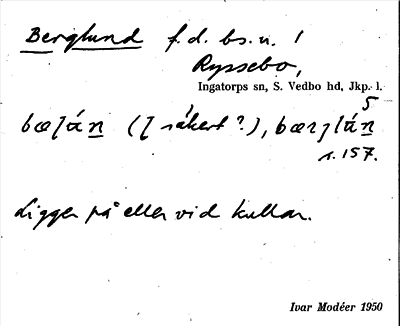 Berglund f.d. bs. u. 1
Ryssebo,
Ingatorps sn, S. Vedbo hd, Jkp. l.
5
(ʃ säkert?),
s. 157.
Ligger på eller vid kullar.
Ivar Modéer 1950